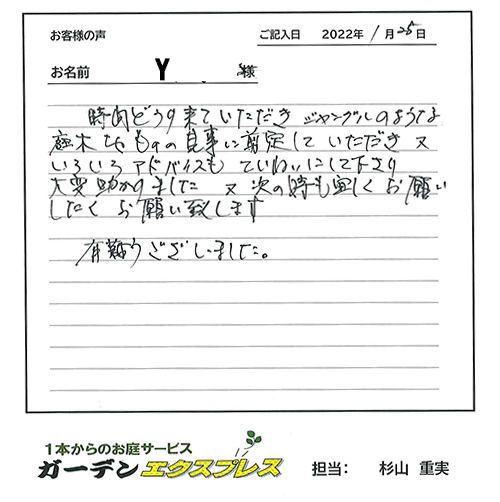 お客様の声
ご記入日 2022年 1月 25日
お名前 Y 様
時間どうり来ていただき ジャングルのような
庭木を ものの見事に剪定して いただき 又
いろいろ アドバイスも ていねいにして下さり
大変助かりました 又 次の時も宜しく お願い
したく お願い致します
有難うございました。
1本からのお庭サービス
ガーデンエクスプレス
担当: 杉山 重実